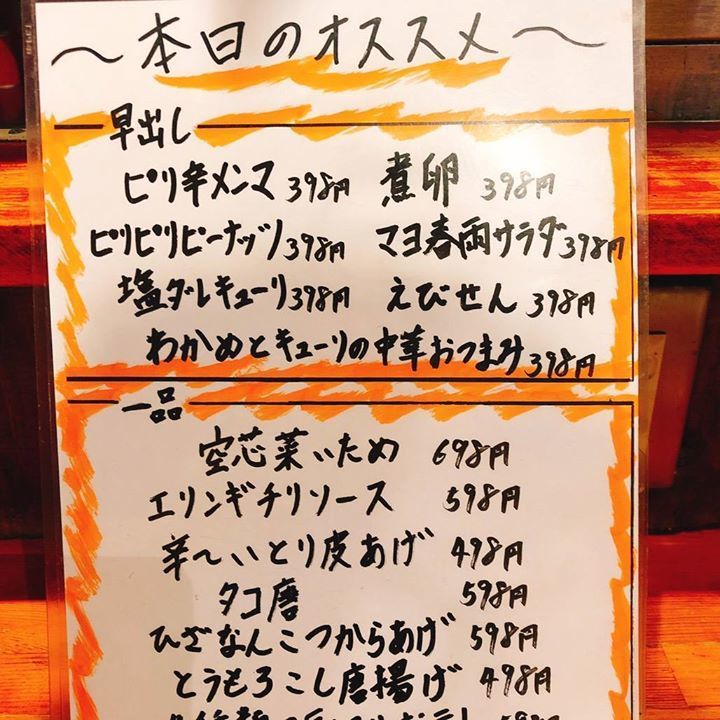 〜本日のオススメ〜
早出し
ピリ辛メンマ 398円 煮卵 398円
ピリピリピーナッツ 398円 マヨ春雨サラダ 398円
塩ダレキューリ 398円 えびせん 398円
わかめとキューリの中華おつまみ 398円
一品
空芯菜いため 698円
エリンギチリソース 598円
辛〜いとり皮あげ 498円
タコ唐 598円
ひざなんこつからあげ 598円
とうもろこし唐揚げ 498円